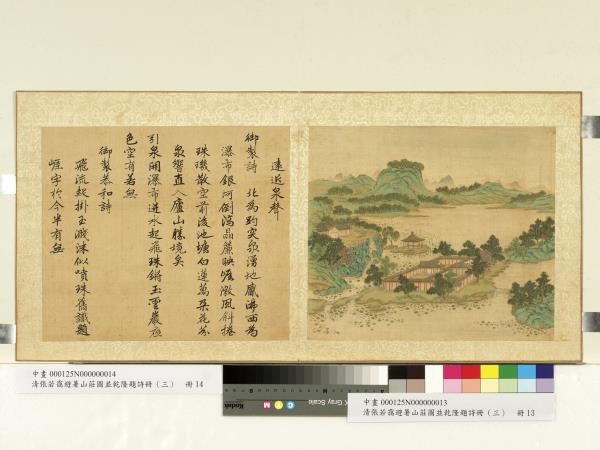 遠近泉聲
御製詩　北為趵突泉湧地觱沸西為
瀑布銀河倒瀉晶簾映崖微風斜捲
珠璣散空前後池塘白蓮萬朵花芬
泉響直入廬山勝境矣
引泉開瀑布迸水起飛珠鏘玉雲巖應
色空有若無
御製恭和詩
飛流疑掛玉濺沫似噴珠舊識題
崖字於今半有無
中畫 000125N000000014
清張若靄避暑山莊圖並乾隆題詩冊（三）　冊 14
Kodak
Gray Scale
中畫 000125N000000013
清張若靄避暑山莊圖並乾隆題詩冊（三）　冊 13